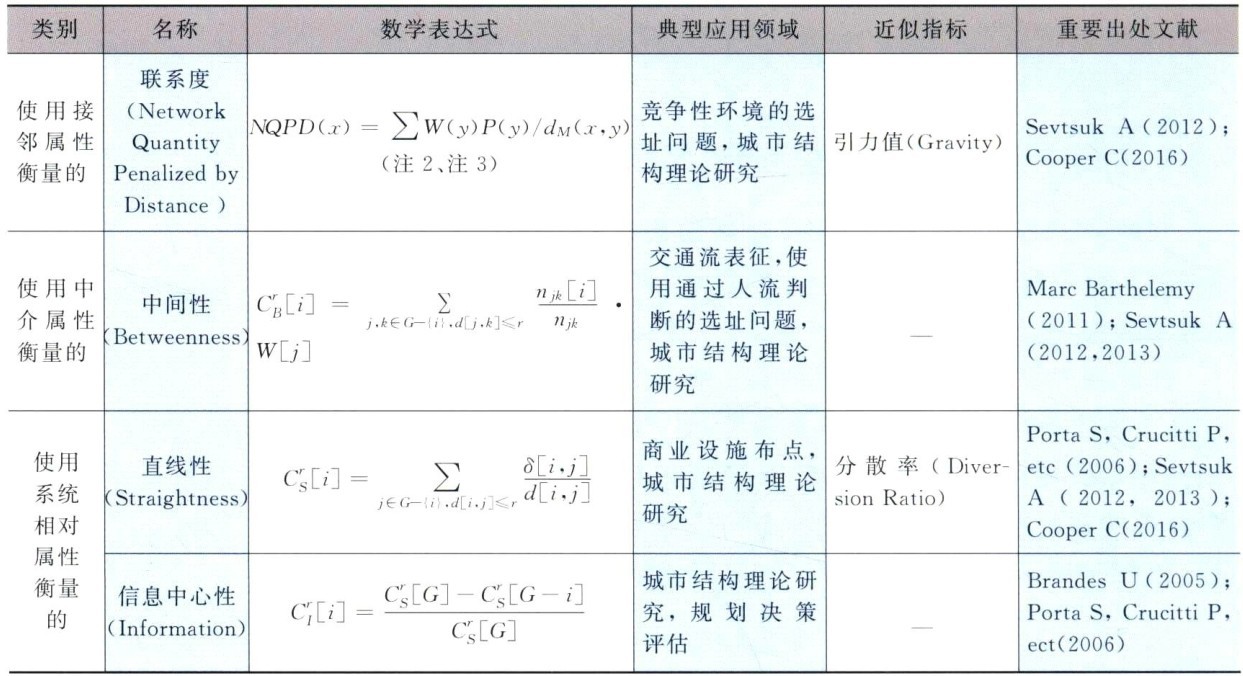 类别 名称 数学表达式 典型应用领域 近似指标 重要出处文献
使用接
邻属性
衡量的
联系度
(Network
Quantity
Penalized by
Distance)
NQPD(x) = ∑W(y)P(y)/d_M(x,y)
(注2、注3)
竞争性环境的选
址问题,城市结
构理论研究
引力值(Gravity)
Sevtsuk A(2012);
Cooper C(2016)
使用中
介属性
衡量的
中间性
(Betweenness)
C_B^r[i] = ∑_{j,k∈G−{i},d[j,k]≤r} n_jk[i]/n_jk ·
W[j]
交通流表征,使
用通过人流判
断的选址问题,
城市结构理论
研究
—
Marc Barthelemy
(2011); Sevtsuk A
(2012,2013)
使用
系统
相对
属性
衡量
的
直线性
(Straightness)
C_S^r[i] = ∑_{j∈G−{i},d[i,j]≤r} δ[i,j]/d[i,j]
商业设施布点,
城市结构理论
研究
分散率(Diver-
sion Ratio)
Porta S, Crucitti P,
etc(2006);Sevtsuk
A(2012, 2013);
Cooper C(2016)
信息中心性
(Information)
C_I^r[i] = (C_S^r[G]−C_S^r[G−i])/C_S^r[G]
城市结构理论研
究,规划决策
评估
—
Brandes U(2005);
Porta S, Crucitti P,
ect(2006)